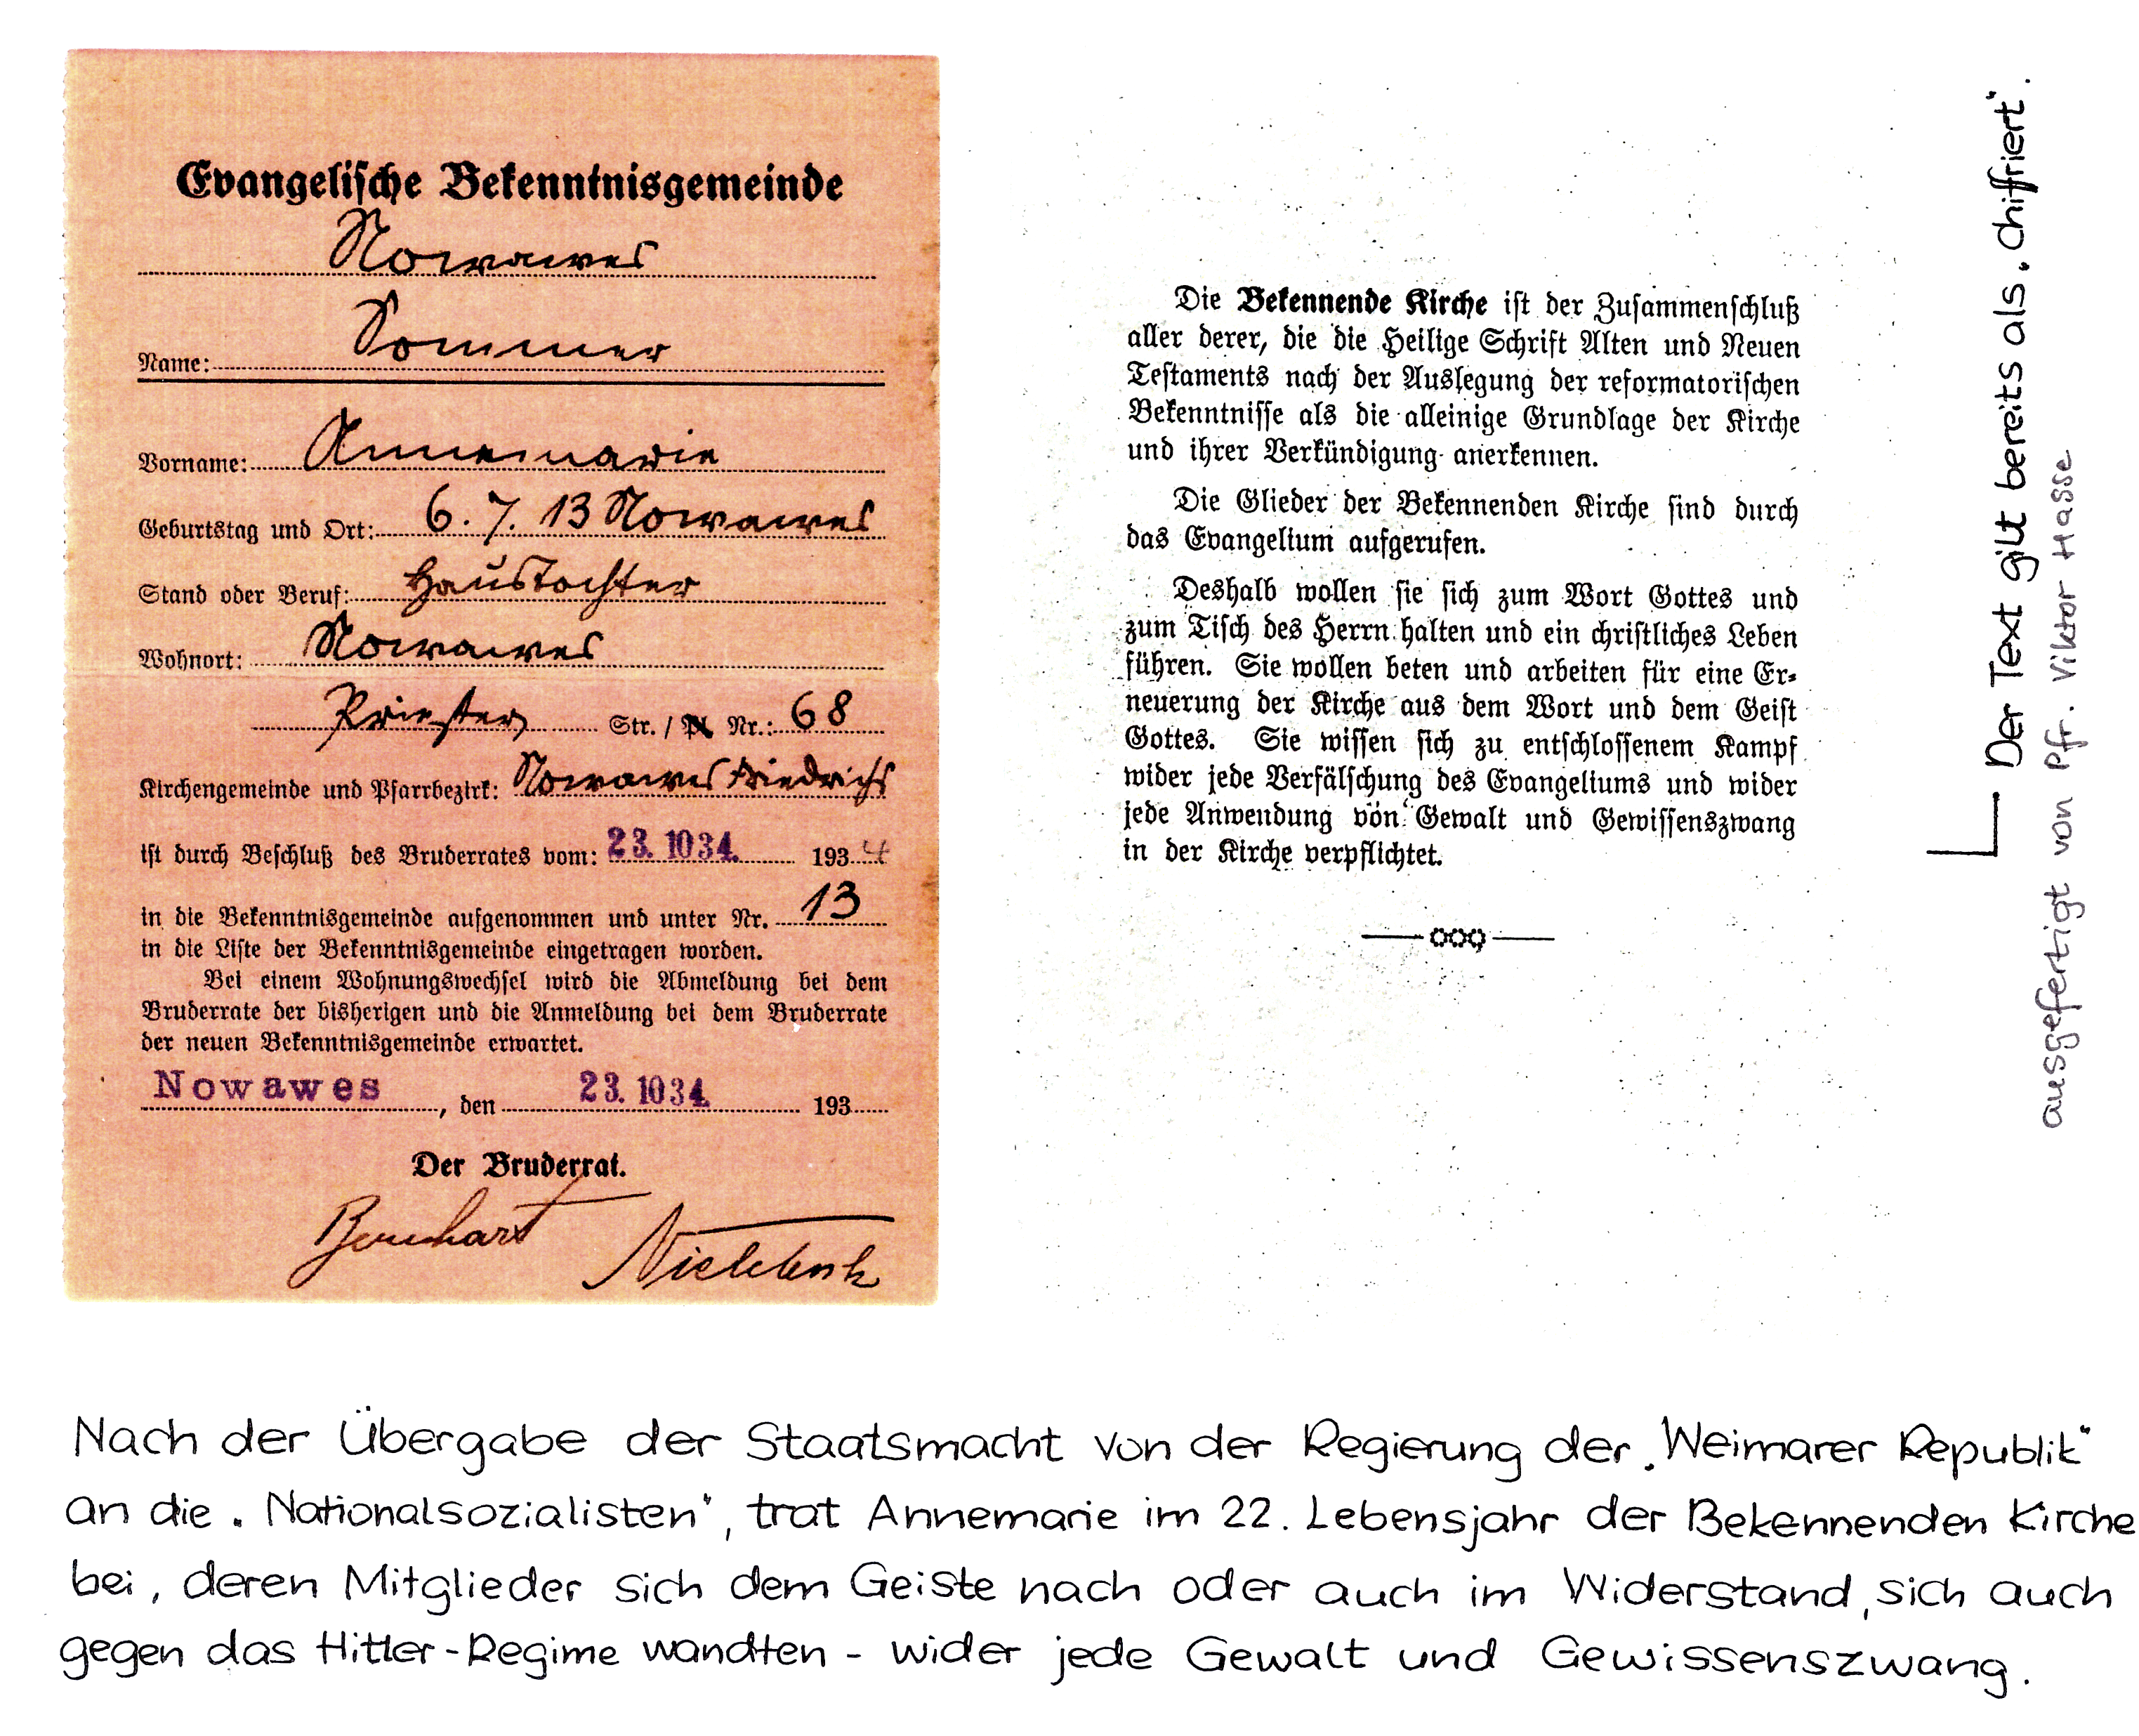 Evangelische Bekenntnisgemeinde
Nowawes
Name: Sommer
Vorname: Annemarie
Geburtstag und Ort: 6. 7. 13 Nowawes
Stand oder Beruf: Haustochter
Wohnort: Nowawes
Priester Str. / Pl. Nr.: 68
Kirchengemeinde und Pfarrbezirk: Nowawes Friedrichs
ist durch Beschluß des Bruderrates vom: 23. 10 34. 1934
in die Bekenntnisgemeinde aufgenommen und unter Nr. 13
in die Liste der Bekenntnisgemeinde eingetragen worden.
Bei einem Wohnungswechsel wird die Abmeldung bei dem
Bruderrate der bisherigen und die Anmeldung bei dem Bruderrate
der neuen Bekenntnisgemeinde erwartet.
Nowawes, den 23. 10 34. 193
Der Bruderrat.
Die Bekennende Kirche ist der Zusammenschluß
aller derer, die die Heilige Schrift Alten und Neuen
Testaments nach der Auslegung der reformatorischen
Bekenntnisse als die alleinige Grundlage der Kirche
und ihrer Verkündigung anerkennen.
Die Glieder der Bekennenden Kirche sind durch
das Evangelium aufgerufen.
Deshalb wollen sie sich zum Wort Gottes und
zum Tisch des Herrn halten und ein christliches Leben
führen. Sie wollen beten und arbeiten für eine Er-
neuerung der Kirche aus dem Wort und dem Geist
Gottes. Sie wissen sich zu entschlossenem Kampf
wider jede Verfälschung des Evangeliums und wider
jede Anwendung von Gewalt und Gewissenszwang
in der Kirche verpflichtet.
Der Text gilt bereits als „chiffriert“.
ausgefertigt von Pfr. Viktor Hasse
Nach der Übergabe der Staatsmacht von der Regierung der „Weimarer Republik“
an die „Nationalsozialisten“, trat Annemarie im 22. Lebensjahr der Bekennenden Kirche
bei, deren Mitglieder sich dem Geiste nach oder auch im Widerstand, sich auch
gegen das Hitler-Regime wandten - wider jede Gewalt und Gewissenszwang.